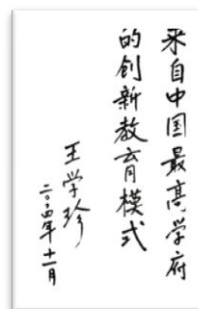 来自中国最高学府
的创新教育模式
王学珍
二〇〇四年十一月